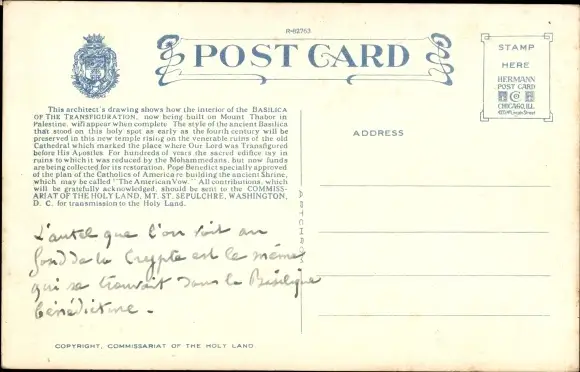 R-82763
POST CARD
STAMP
HERE
HERMANN
POST CARD
CO
CHICAGO, ILL.
ADDRESS
This architect's drawing shows how the interior of the BASILICA
OF THE TRANSFIGURATION, now being built on Mount Thabor in
Palestine, will appear when complete. The style of the ancient Basilica
that stood on this holy spot as early as the fourth century will be
preserved in this new temple rising on the venerable ruins of the old
Cathedral which marked the place where Our Lord was Transfigured
before His Apostles. For hundreds of years the sacred edifice lay in
ruins to which it was reduced by the Mohammedans, but now funds
are being collected for its restoration. Pope Benedict specially approved
of the plan of the Catholics of America re building the ancient Shrine,
which may be called "The American Vow." All contributions, which
will be gratefully acknowledged, should be sent to the COMMISS-
ARIAT OF THE HOLY LAND, MT. ST. SEPULCHRE, WASHINGTON,
D. C. for transmission to the Holy Land.
L'autel que l'on voit au
fond de la Crypte est le même
qui se trouvait dans la Basilique
bénédictine.
COPYRIGHT, COMMISSARIAT OF THE HOLY LAND